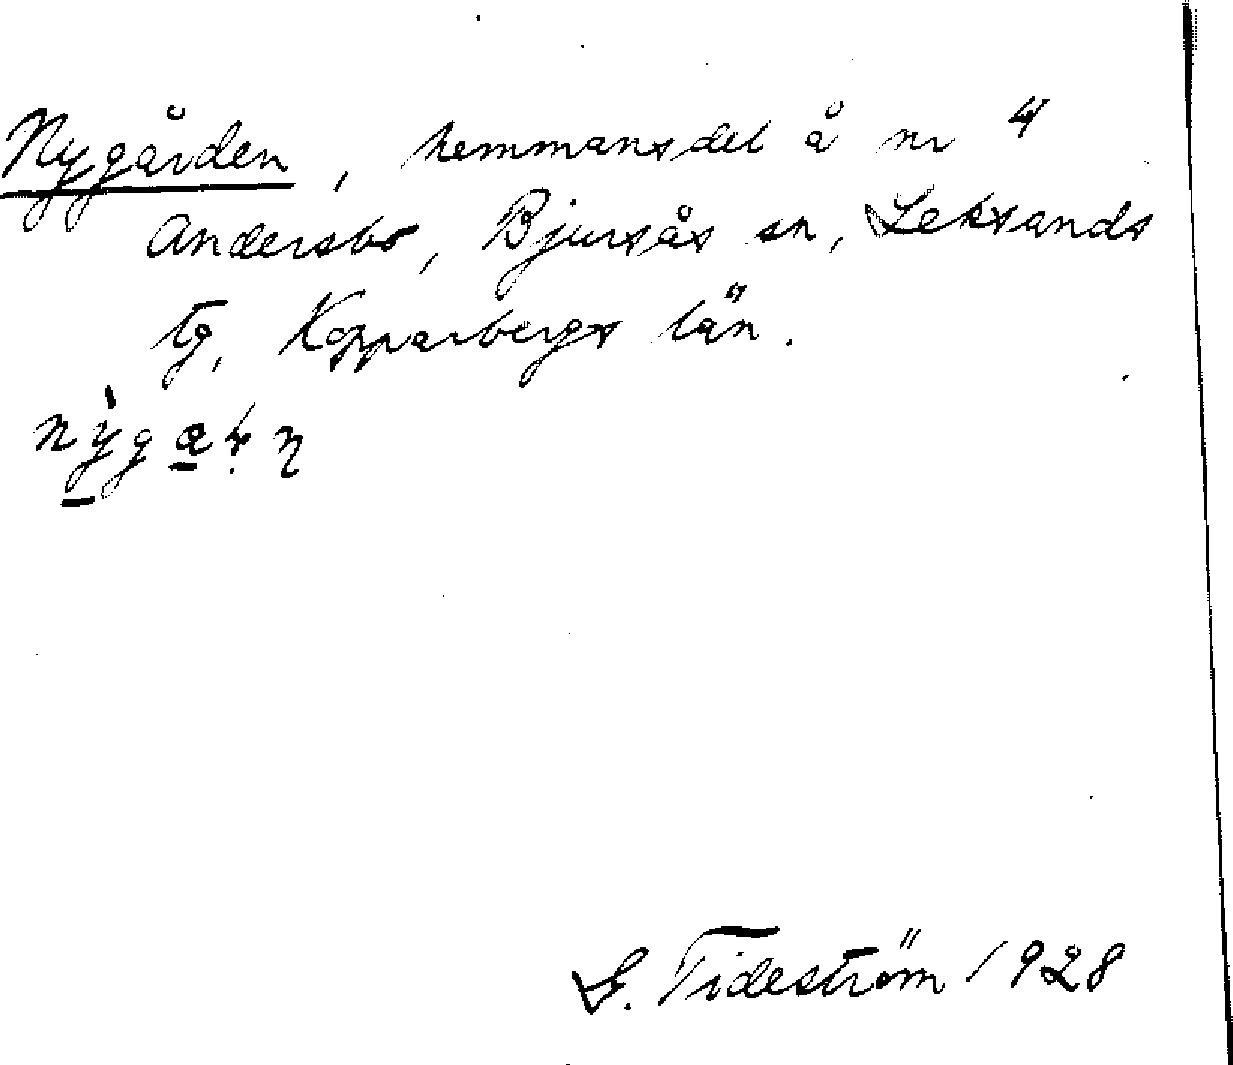 Nygården, hemmansdel å nr 4
Andersbo, Bjursås sn, Leksands
tg, Kopparbergs län.
G. Tideström 1928